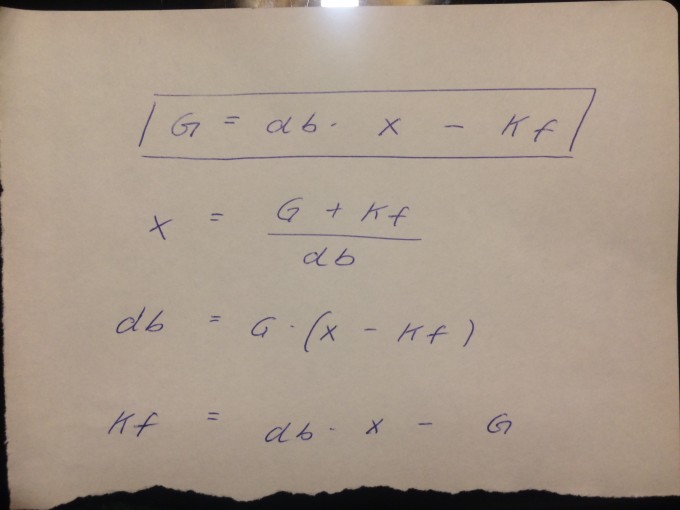 G = db · x - Kf
x = (G + Kf) / db
db = G · (x - Kf)
Kf = db · x - G